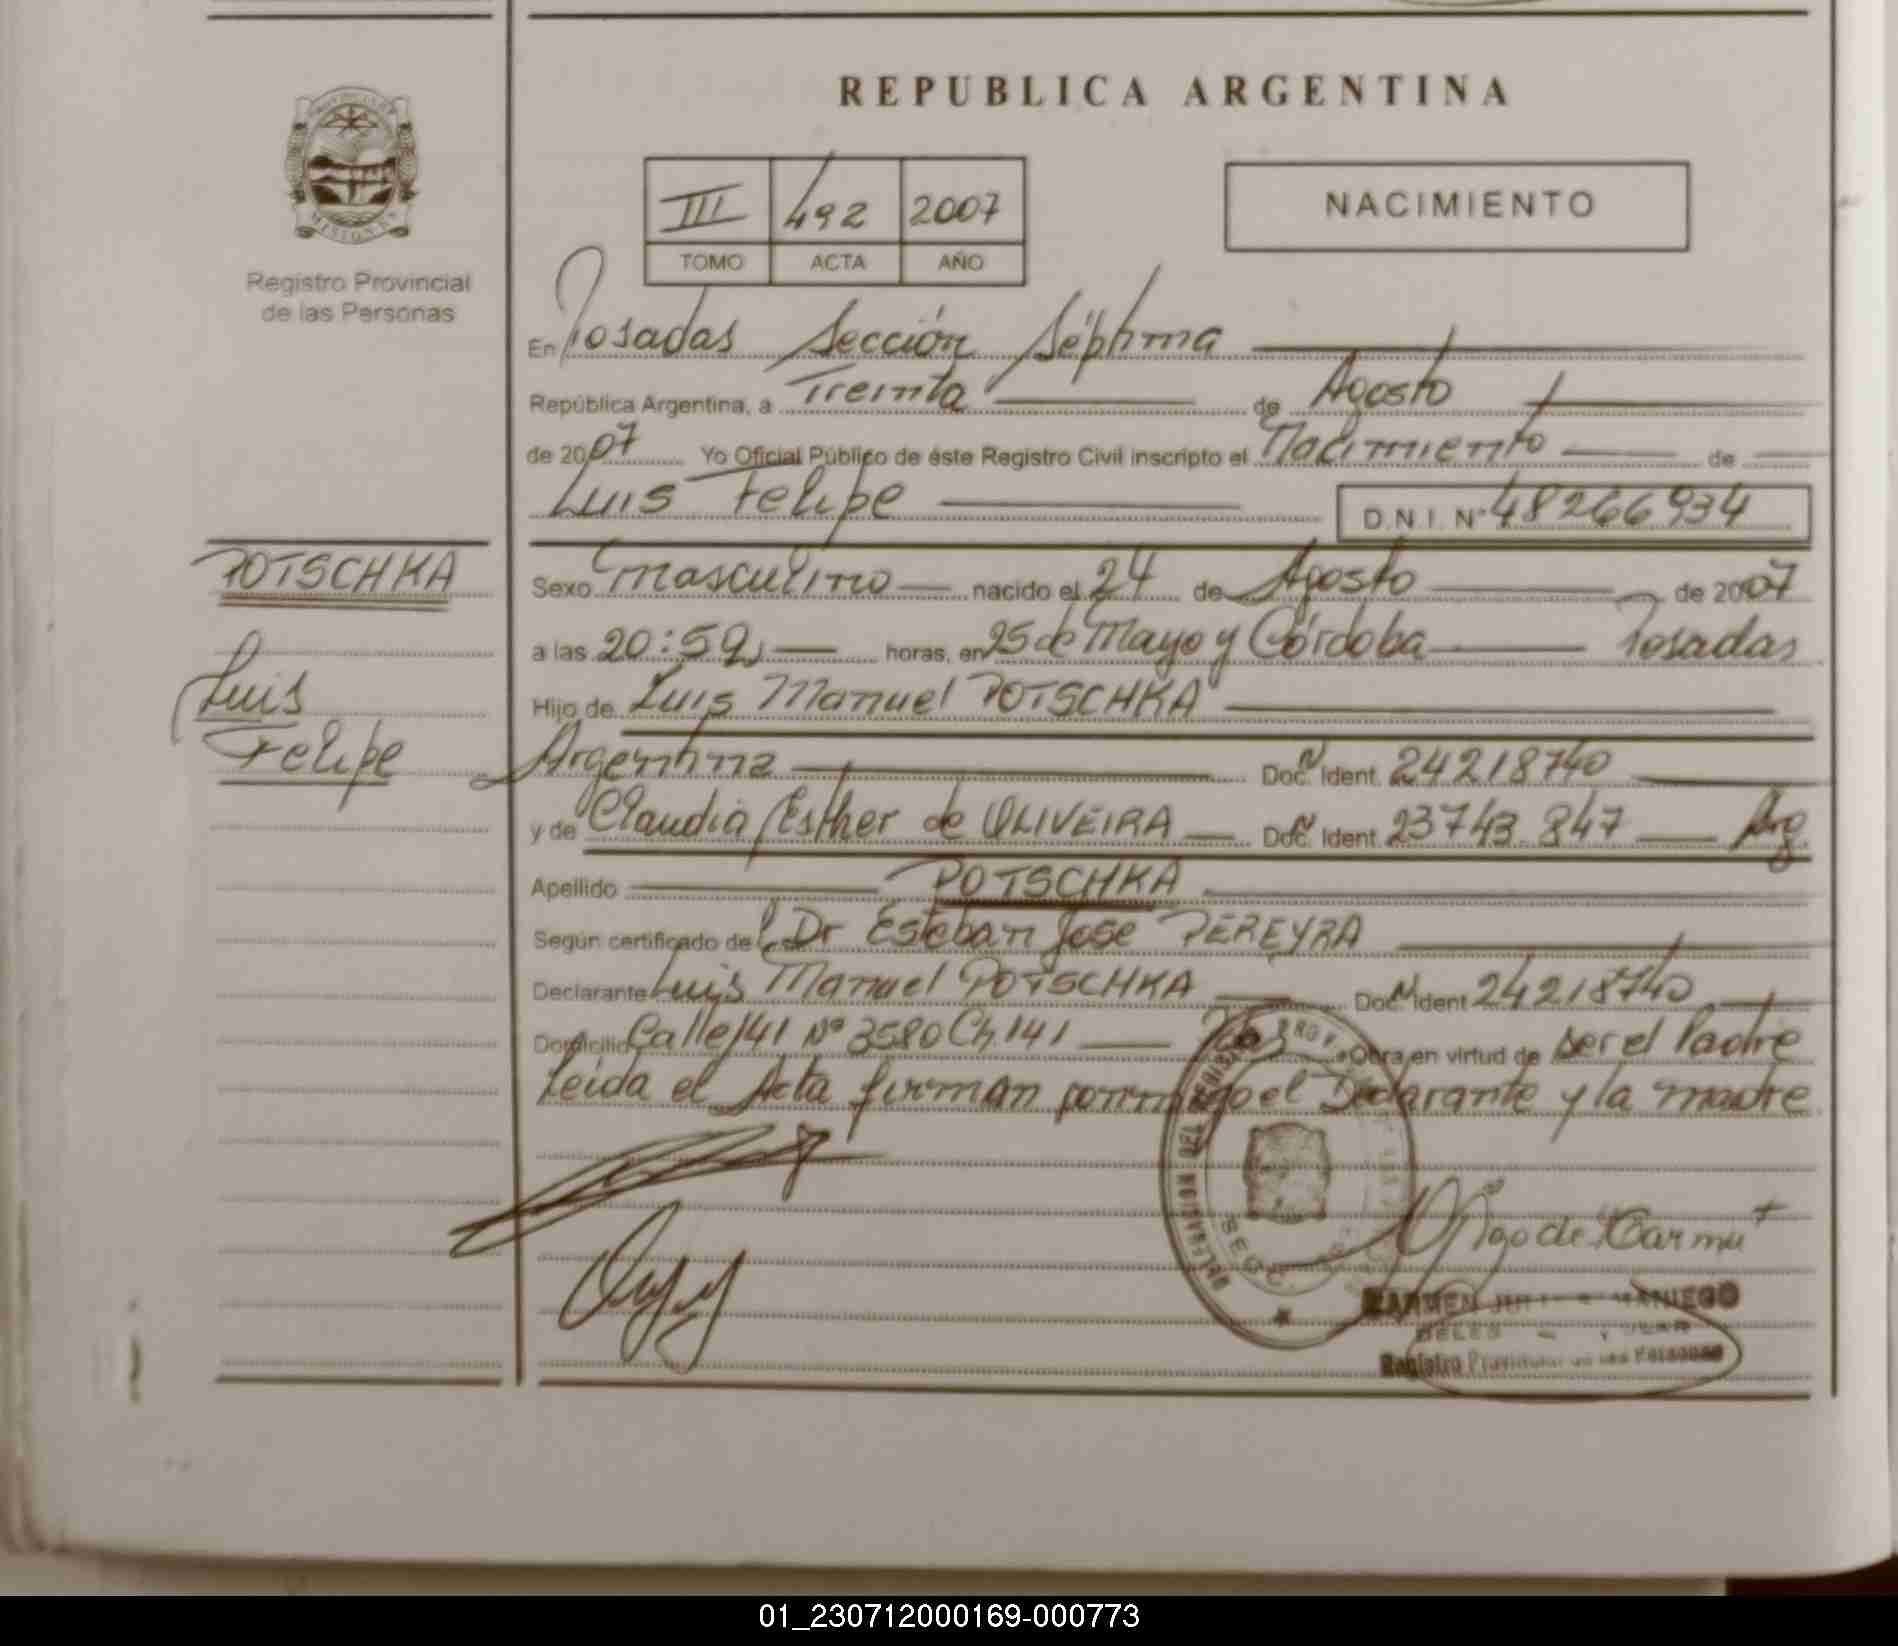 REPUBLICA ARGENTINA
PROVINCIA DE
MISIONES
Registro Provincial
de las Personas
III 492 2007
TOMO ACTA AÑO
NACIMIENTO
En Posadas Sección Séptima
República Argentina, a Treinta de Agosto
de 2007 Yo Oficial Público de éste Registro Civil inscripto el Nacimiento de
Luis Felipe D.N.I. Nº 48266934
POTSCHKA
Luis
Felipe
Sexo Masculino nacido el 24 de Agosto de 2007
a las 20:59 horas, en 25 de Mayo y Córdoba Posadas
Hijo de Luis Manuel POTSCHKA
Argentina Doc. Ident. 24218740
y de Claudia Esther de OLIVEIRA Doc. Ident. 23743.847 Arg.
Apellido POTSCHKA
Según certificado del Dr Esteban José PEREYRA
Declarante Luis Manuel POTSCHKA Doc. Ident 24218740
Domicilio Calle 141 Nº 3580 Ch. 141 Obra en virtud de ser el Padre
Leída el Acta firman conmigo el Declarante y la madre
CARMEN MANIEGO
Registro Provincial de las Personas
01_230712000169-000773